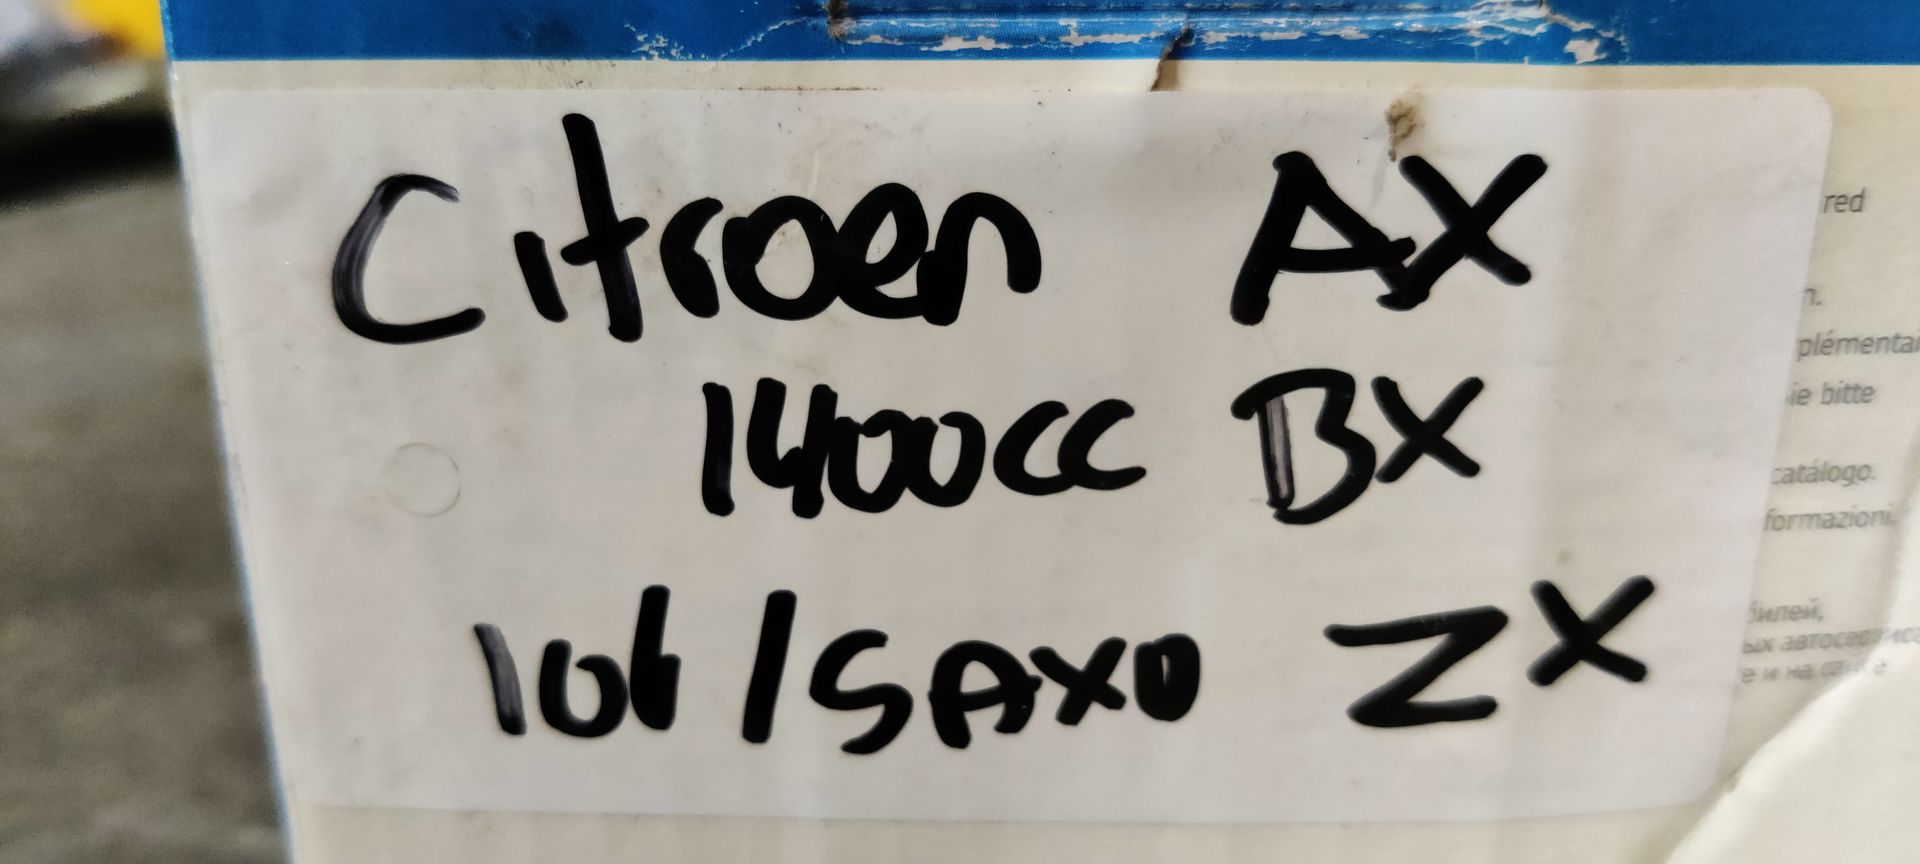 Citroen AX
1400cc BX
106/SAXO ZX
red
n.
plémentai
ie bitte
catálogo.
formazioni.
билей,
ых автосервисо
е и на са